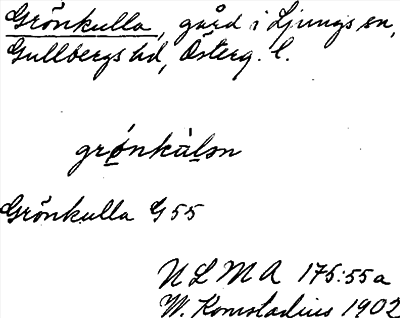 Grönkulla, gård i Ljungs sn,
Gullbergs hd, Österg. l.
grǿnkàlən
Grönkulla G55
NLMA 175:55a
W. Komstadius 1902